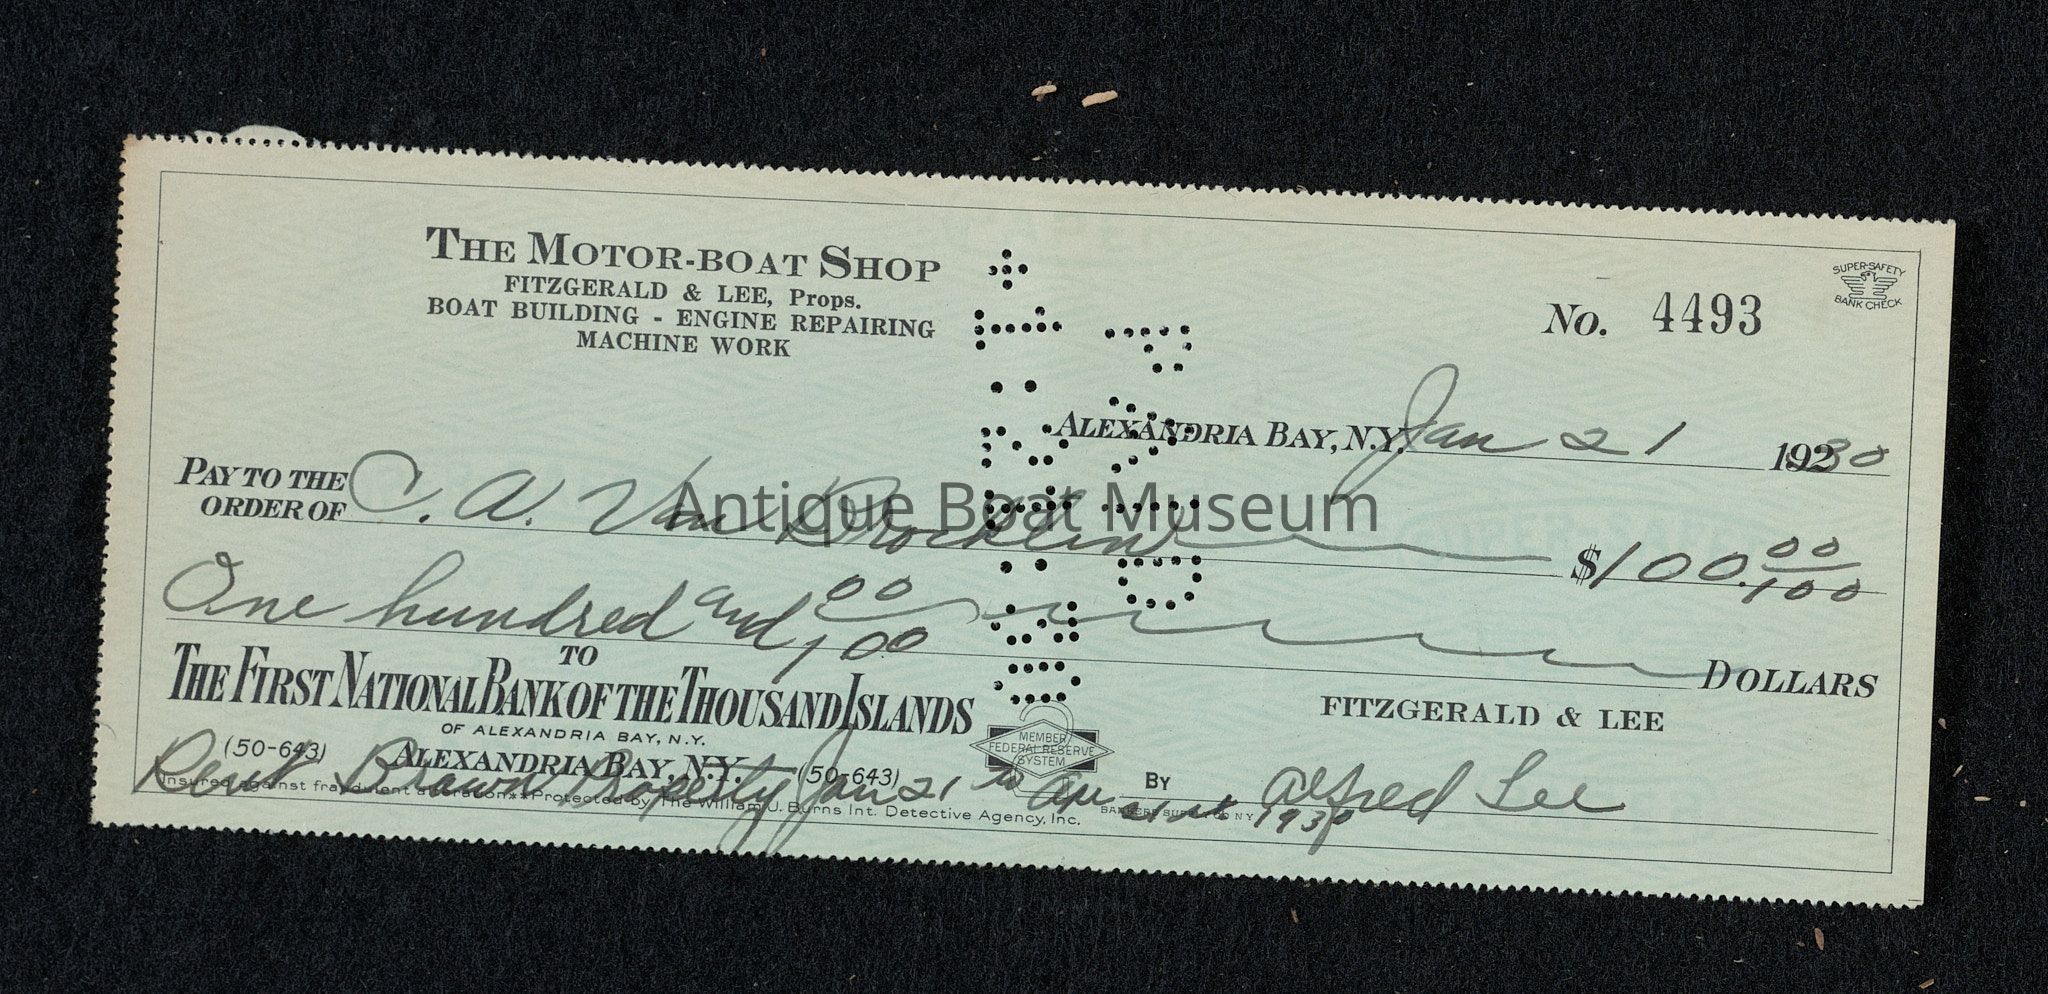 THE MOTOR-BOAT SHOP
FITZGERALD & LEE, Props.
BOAT BUILDING - ENGINE REPAIRING
MACHINE WORK
SUPER-SAFETY
BANK CHECK
No. 4493
ALEXANDRIA BAY, N.Y. Jan 21 1930
PAY TO THE
ORDER OF C. A. Van Brocklin $100.00/100
Antique Boat Museum
One hundred and 00/100 DOLLARS
TO
THE FIRST NATIONAL BANK OF THE THOUSAND ISLANDS
OF ALEXANDRIA BAY, N.Y.
(50-643) ALEXANDRIA BAY, N.Y. (50-643)
MEMBER
FEDERAL RESERVE
SYSTEM
FITZGERALD & LEE
BY Alfred Lee
Rent Brown Property Jan 21 to Apr 21st 1930
Insured against fraudulent alteration**Protected by The William J. Burns Int. Detective Agency, Inc.